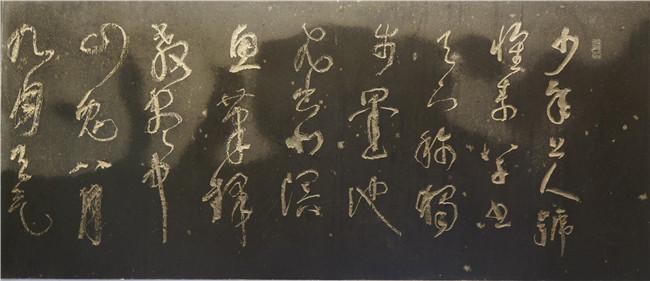 少年上人號
懷素草書
天下稱獨
步墨池
飛出北溟
魚筆鋒
殺盡中
山兔八月
九月天氣